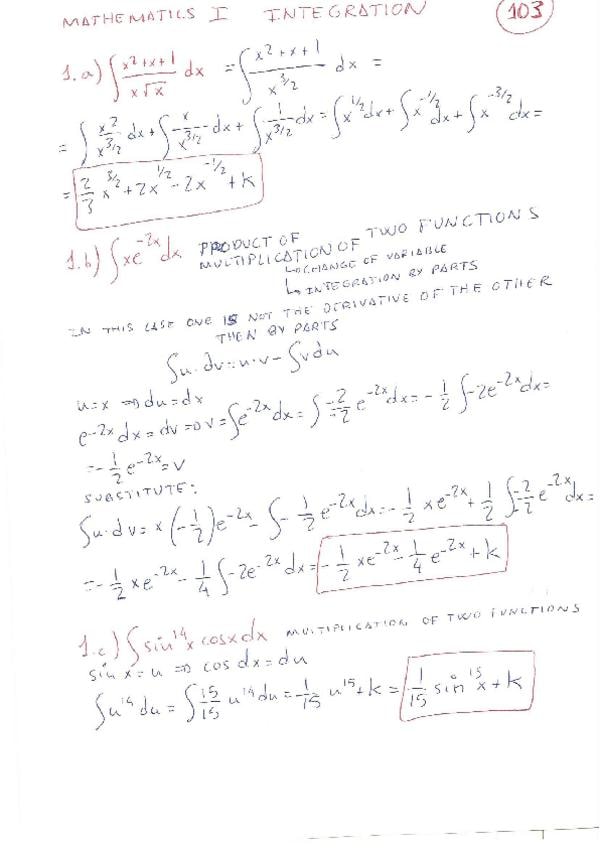 MATHEMATICS I INTEGRATION 103
1.a) ∫ (x²+x+1)/(x√x) dx = ∫ (x²+x+1)/x^(3/2) dx =
= ∫ x²/x^(3/2) dx + ∫ x/x^(3/2) dx + ∫ 1/x^(3/2) dx = ∫ x^(1/2) dx + ∫ x^(-1/2) dx + ∫ x^(-3/2) dx =
= 2/3 x^(3/2) + 2x^(1/2) - 2x^(-1/2) + k
1.b) ∫ xe^(-2x) dx PRODUCT OF
MULTIPLICATION OF TWO FUNCTIONS
↳ CHANGE OF VARIABLE
↳ INTEGRATION BY PARTS
IN THIS CASE ONE IS NOT THE DERIVATIVE OF THE OTHER
THEN BY PARTS
∫u·dv = u·v - ∫vdu
u=x ⇒ du=dx
e^(-2x) dx = dv ⇒ v = ∫e^(-2x) dx = ∫ -2/-2 e^(-2x) dx = -1/2 ∫ -2e^(-2x) dx =
= -1/2 e^(-2x) = v
SUBSTITUTE:
∫u·dv = x(-1/2)e^(-2x) - ∫ -1/2 e^(-2x) dx = -1/2 xe^(-2x) + 1/2 ∫ -2/-2 e^(-2x) dx =
= -1/2 xe^(-2x) - 1/4 ∫ -2e^(-2x) dx = -1/2 xe^(-2x) - 1/4 e^(-2x) + k
1.c) ∫ sin¹⁴x cosx dx MULTIPLICATION OF TWO FUNCTIONS
sin x = u ⇒ cos dx = du
∫u¹⁴ du = ∫ 15/15 u¹⁴ du = 1/15 u¹⁵ + k = 1/15 sin¹⁵x + k